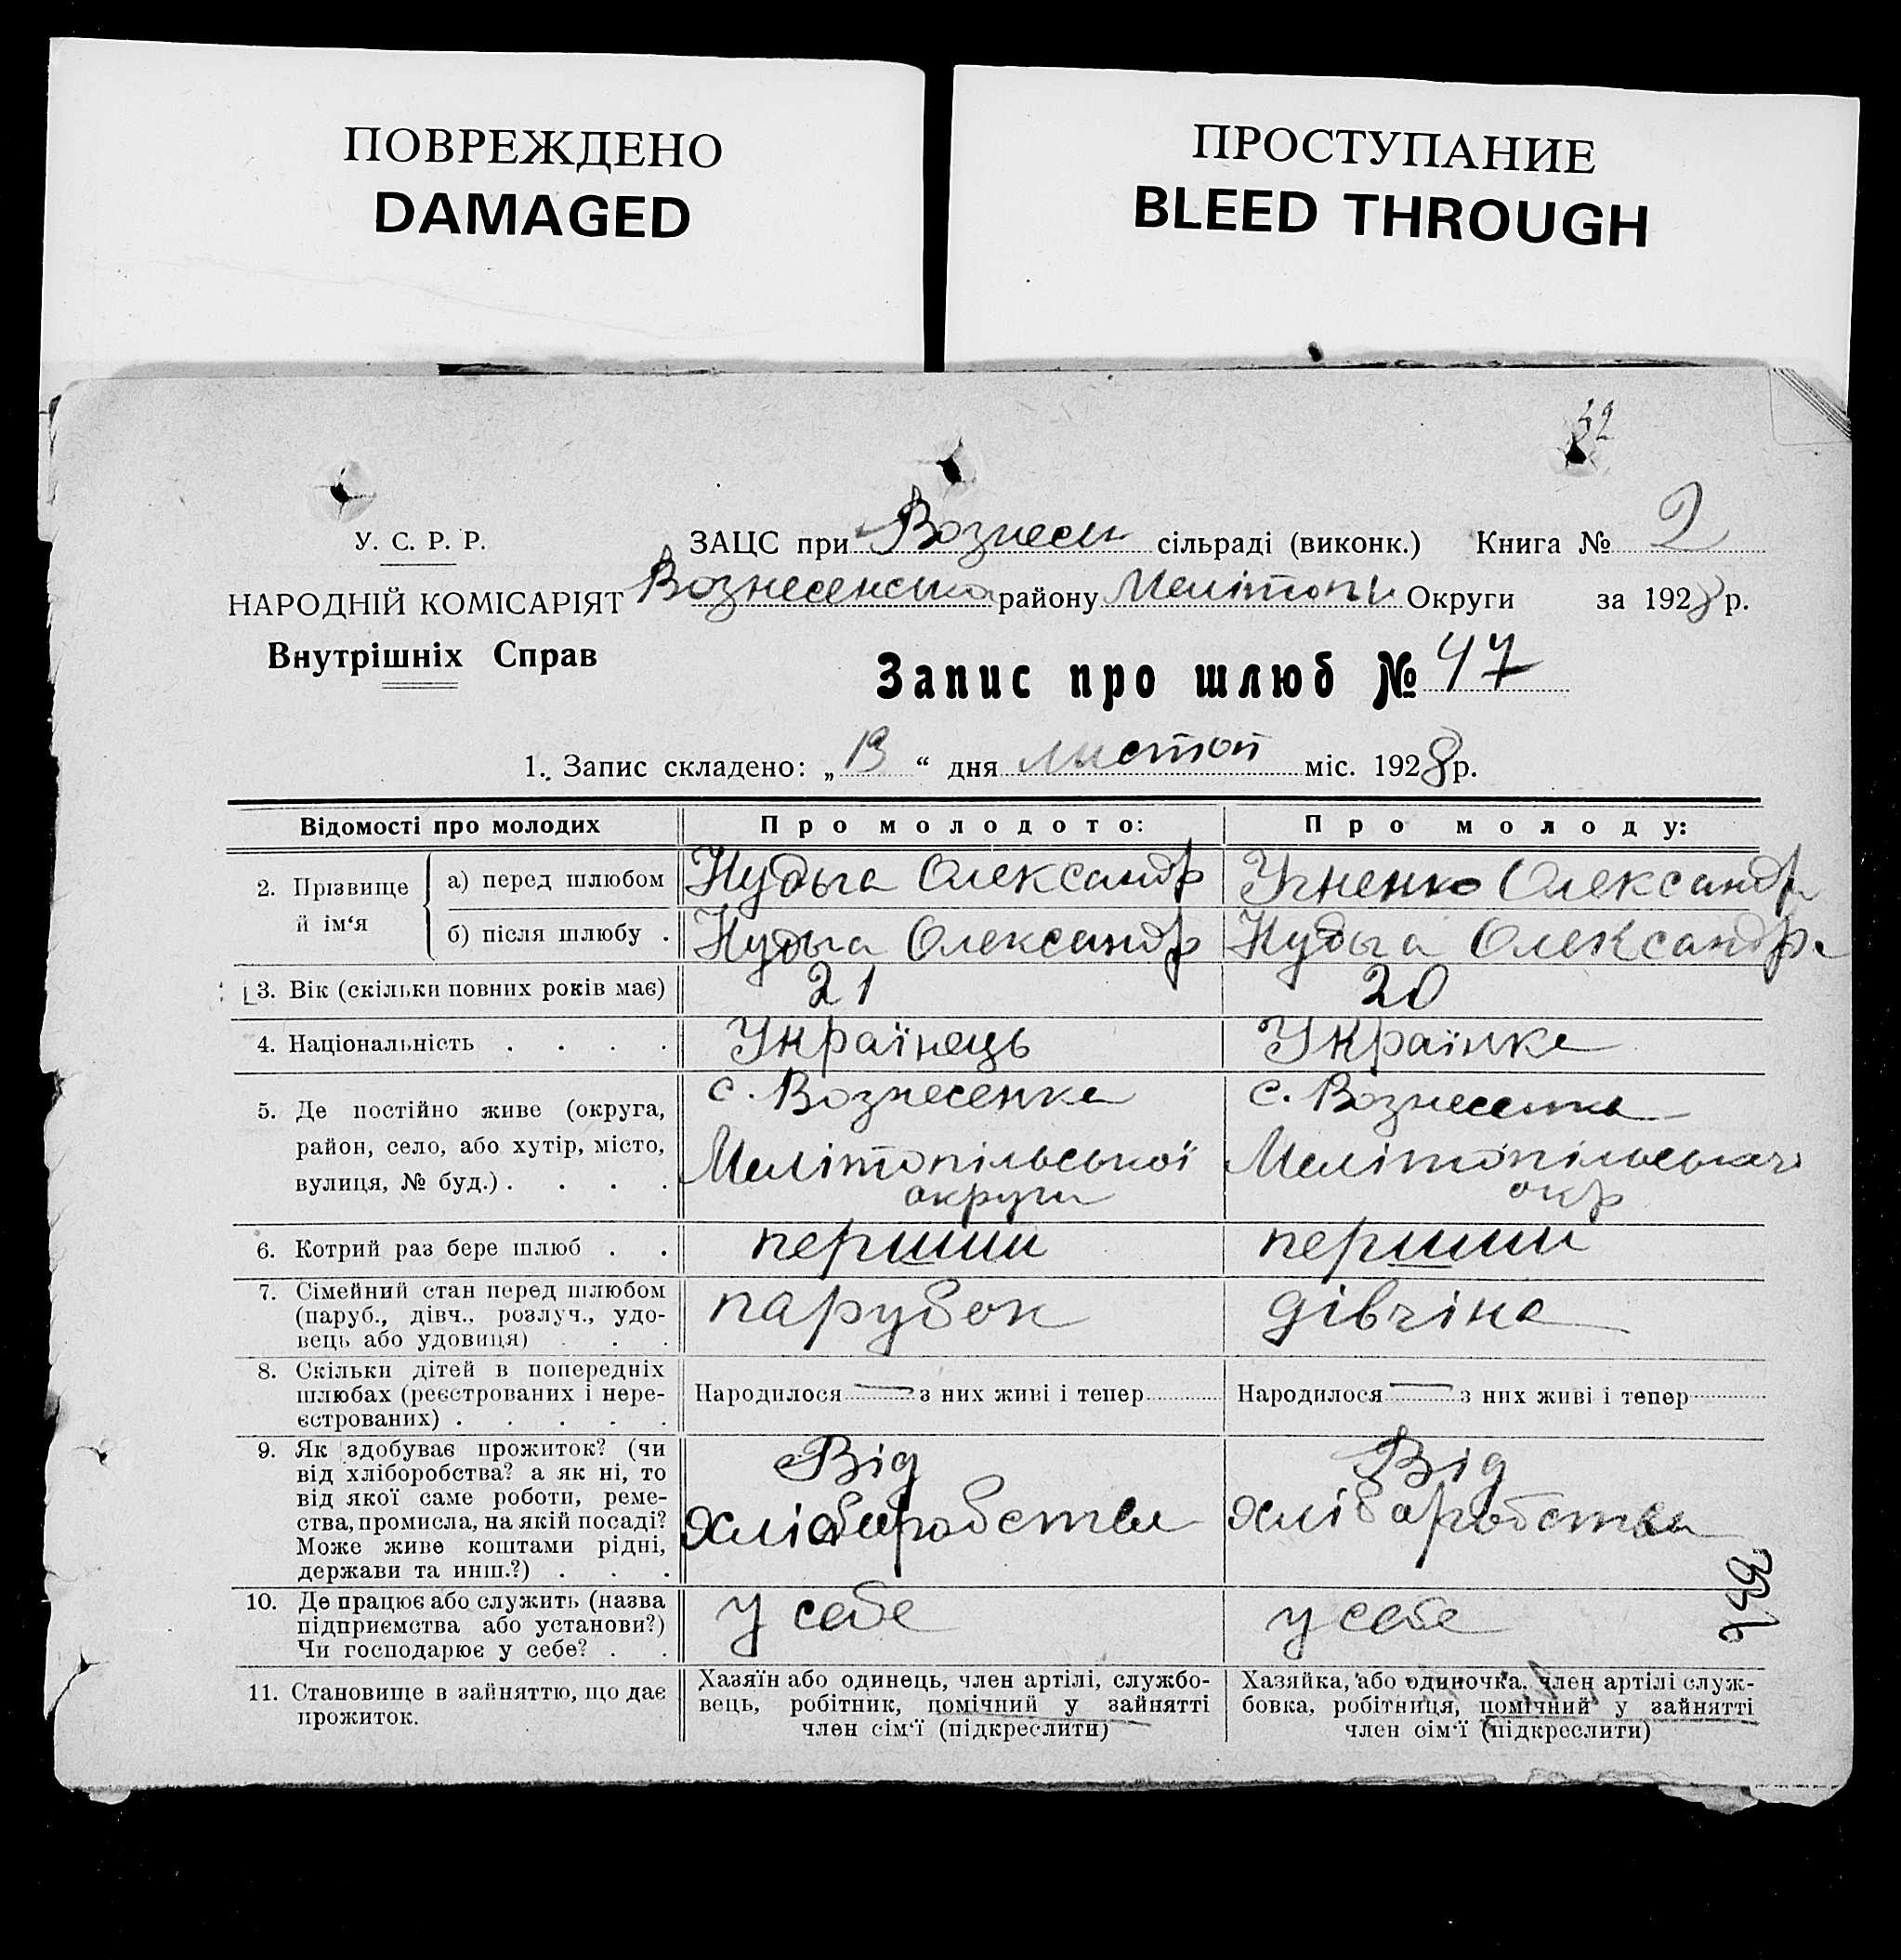 ПОВРЕЖДЕНО
DAMAGED
ПРОСТУПАНИЕ
BLEED THROUGH
У. С. Р. Р.
НАРОДНІЙ КОМІСАРІЯТ
Внутрішніх Справ
ЗАЦС при Вознесен сільраді (виконк.) Книга № 2
Вознесенська району Мелітоп Округи за 1928 р.
Запис про шлюб № 47
1. Запис складено: „13“ дня листоп міс. 1928 р.
Відомості про молодих Про молодого: Про молоду:
2. Прізвище й ім‘я
а) перед шлюбом Нудьга Олександр Олександр
б) після шлюбу . Нудьга Олександр Нудьга Олександра
3. Вік (скільки повних років має) 21 20
4. Національність . . . . Українець Українка
5. Де постійно живе (округа,
район, село, або хутір, місто,
вулиця, № буд.) . . . .
с. Вознесенка
Мелітопільської
округи
с. Вознесенка
Мелітопільської
окр
6. Котрий раз бере шлюб . . перший перший
7. Сімейний стан перед шлюбом
(паруб., дівч., розлуч., удо-
вець або удовиця) . . .
парубок дівчіна
8. Скільки дітей в попередніх
шлюбах (реєстрованих і нере-
єстрованих) . . . . .
Народилося — з них живі і тепер Народилося — з них живі і тепер
9. Як здобуває прожиток? (чи
від хліборобства? а як ні, то
від якої саме роботи, реме-
ства, промисла, на якій посаді?
Може живе коштами рідні,
держави та инш.?) . . .
Від
хліборобства
Від
хлібаробства
10. Де працює або служить (назва
підприємства або установи?)
Чи господарює у себе? . .
у себе у себе
11. Становище в зайняттю, що дає
прожиток.
Хазяїн або одинець, член артілі, службо-
вець, робітник, помічний у зайнятті
член сім‘ї (підкреслити)
Хазяйка, або одиночка, член артілі служ-
бовка, робітниця, помічний у зайнятті
член сім‘ї (підкреслити)